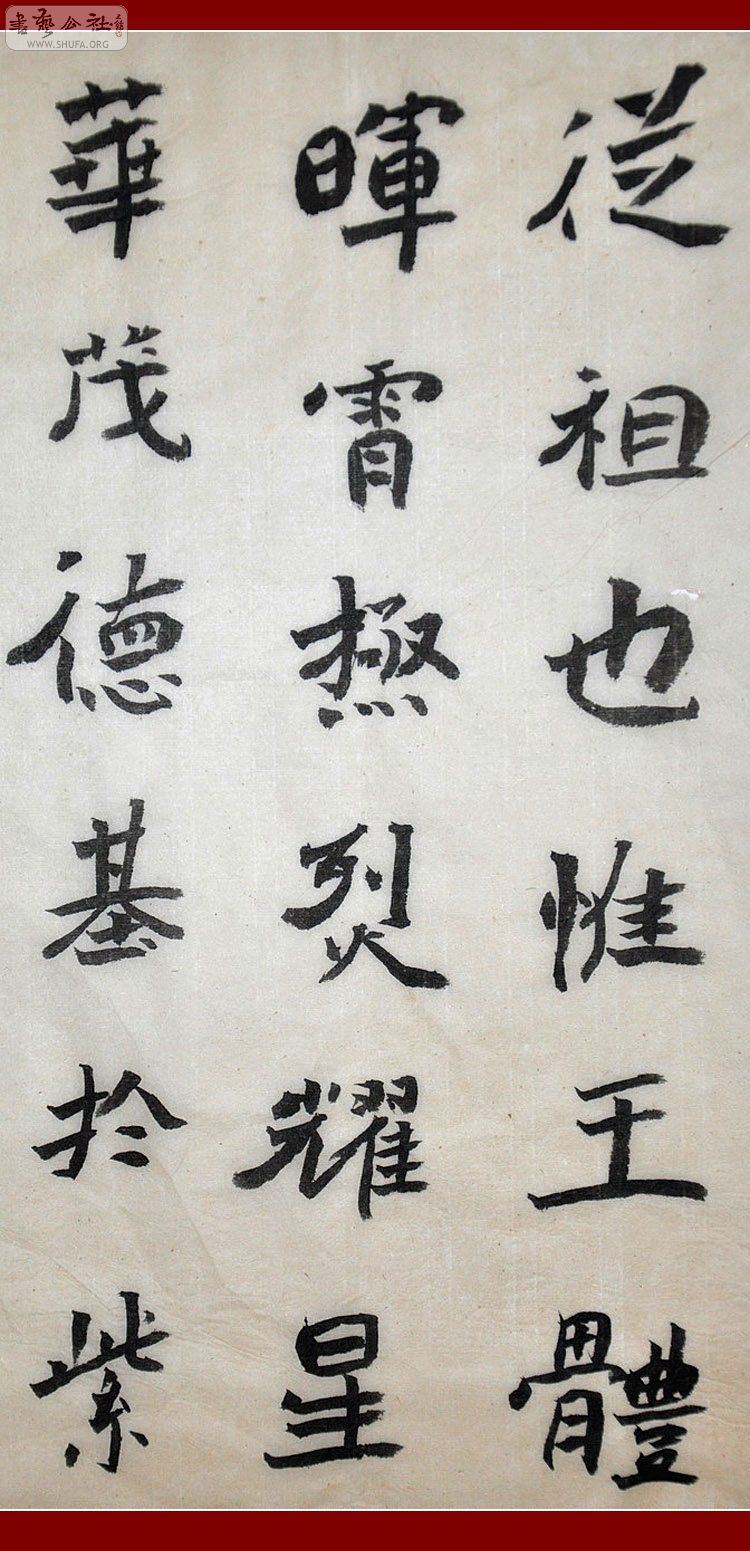 書藝公社
WWW.SHUFA.ORG
從祖也惟王體
暉霄極烈耀星
華茂德基於紫